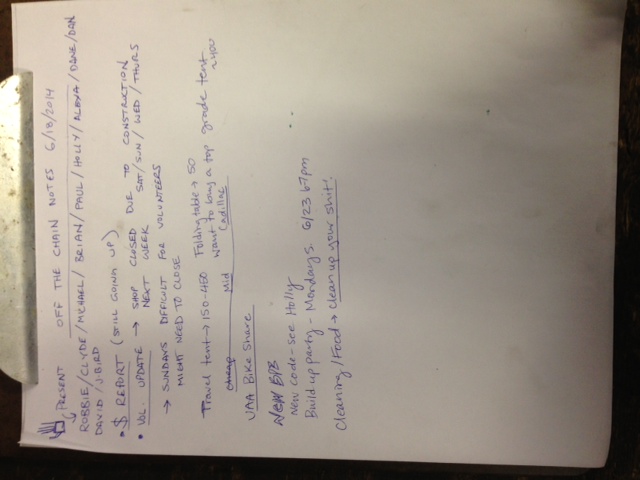 OFF THE CHAIN NOTES 6/18/2014
PRESENT
ROBBIE/CLYDE/MICHAEL/BRIAN/PAUL/HOLLY/ALEXA/DANE/DAN
DAVID/J-BIRD
• $ REPORT (STILL GOING UP)
• VOL. UPDATE → SHOP CLOSED DUE TO CONSTRUCTION
NEXT WEEK SAT/SUN/WED/THURS
→ SUNDAYS DIFFICULT FOR VOLUNTEERS
MIGHT NEED TO CLOSE
Travel tent → 150-450 Folding table → 50
want to buy a top grade tent
~400
cheap Mid Cadillac
UAA Bike Share
New code - see Holly
Build up party - Mondays 6/23 67pm
Cleaning/Food → clean up your shit!